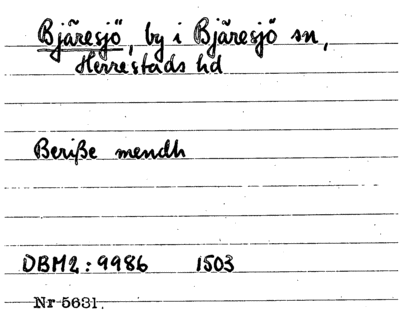 Bjäresjö, by i Bjäresjö sn,
Herrestads hd
Beriße mendh
DBM2:9986 1503
Nr 5631.